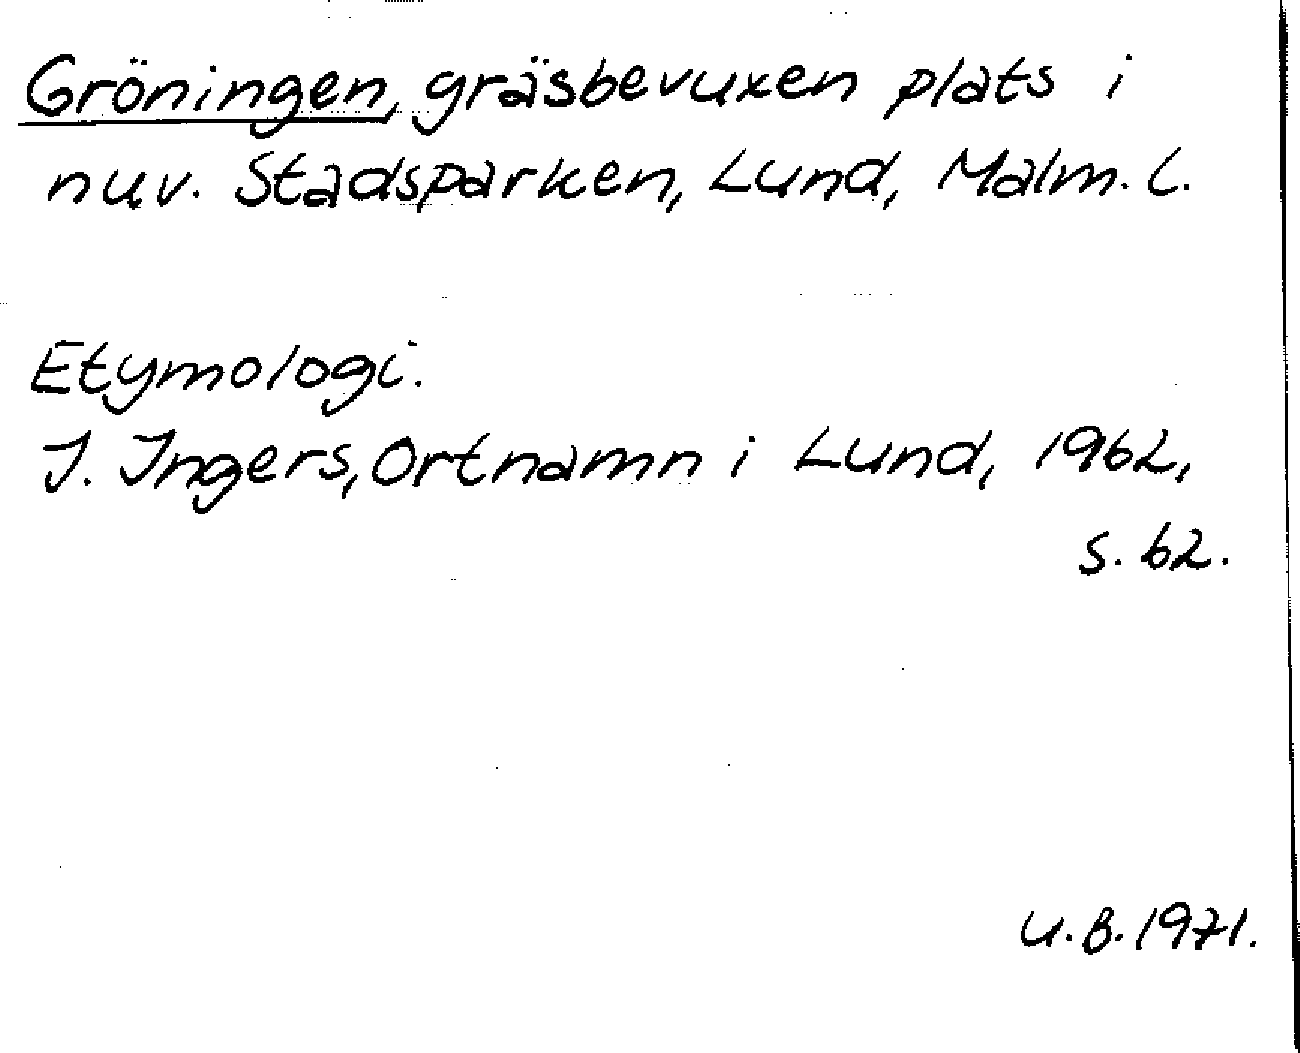 Gröningen, gräsbevuxen plats i
nuv. Stadsparken, Lund, Malm. l.
Etymologi.
I. Ingers, Ortnamn i Lund, 1962,
s. 62.
U.B. 1971.